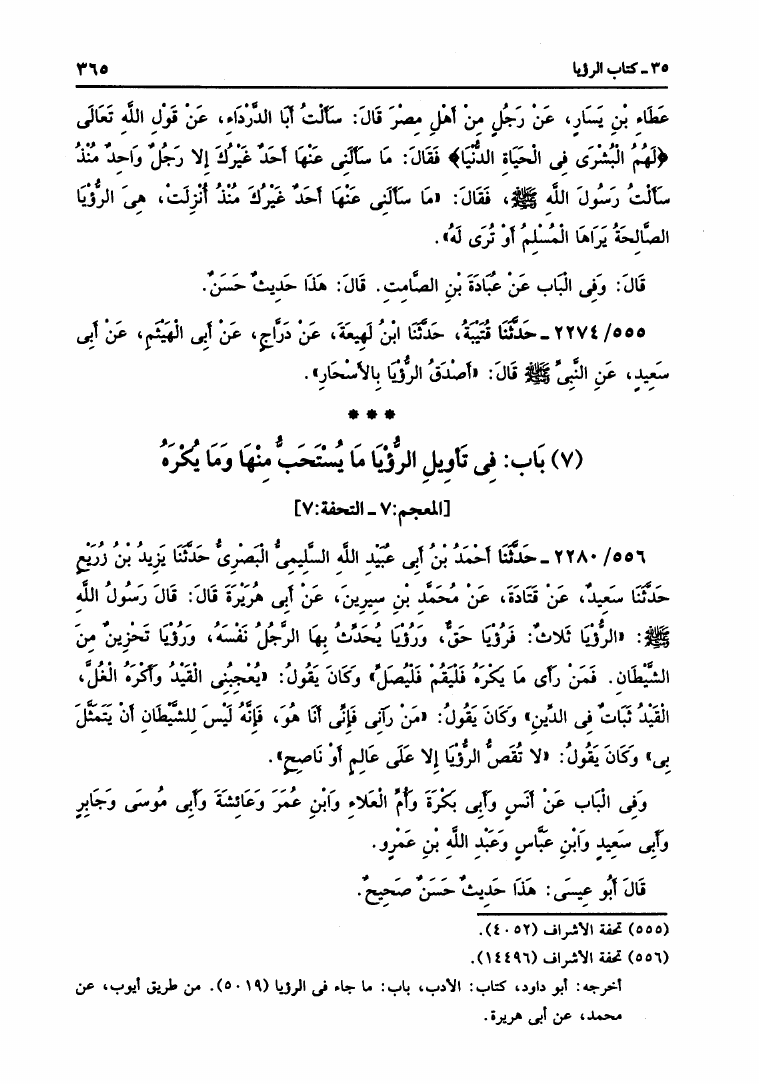 ٣٥ ـ كتاب الرؤيا ٣٦٥
عَطَاءِ بْنِ يَسَارٍ، عَنْ رَجُلٍ مِنْ أَهْلِ مِصْرَ قَالَ: سَأَلْتُ أَبَا الدَّرْدَاءِ، عَنْ قَوْلِ اللَّهِ تَعَالَى
﴿لَهُمُ الْبُشْرَى فِى الْحَيَاةِ الدُّنْيَا﴾ فَقَالَ: مَا سَأَلَنِى عَنْهَا أَحَدٌ غَيْرُكَ إِلا رَجُلٌ وَاحِدٌ مُنْذُ
سَأَلْتُ رَسُولَ اللَّهِ ﷺ، فَقَالَ: «مَا سَأَلَنِى عَنْهَا أَحَدٌ غَيْرُكَ مُنْذُ أُنْزِلَتْ، هِىَ الرُّؤْيَا
الصَّالِحَةُ يَرَاهَا الْمُسْلِمُ أَوْ تُرَى لَهُ».
قَالَ: وَفِى الْبَابِ عَنْ عُبَادَةَ بْنِ الصَّامِتِ. قَالَ: هَذَا حَدِيثٌ حَسَنٌ.
٥٥٥/ ٢٢٧٤ ـ حَدَّثَنَا قُتَيْبَةُ، حَدَّثَنَا ابْنُ لَهِيعَةَ، عَنْ دَرَّاجٍ، عَنْ أَبِى الْهَيْثَمِ، عَنْ أَبِى
سَعِيدٍ، عَنِ النَّبِىِّ ﷺ قَالَ: «أَصْدَقُ الرُّؤْيَا بِالأَسْحَارِ».
* * *
(٧) بَاب: فِى تَأْوِيلِ الرُّؤْيَا مَا يُسْتَحَبُّ مِنْهَا وَمَا يُكْرَهُ
[المعجم:٧ ـ التحفة:٧]
٥٥٦/ ٢٢٨٠ ـ حَدَّثَنَا أَحْمَدُ بْنُ أَبِى عُبَيْدِ اللَّهِ السَّلِيمِىُّ الْبَصْرِىُّ حَدَّثَنَا يَزِيدُ بْنُ زُرَيْعٍ
حَدَّثَنَا سَعِيدٌ، عَنْ قَتَادَةَ، عَنْ مُحَمَّدِ بْنِ سِيرِينَ، عَنْ أَبِى هُرَيْرَةَ قَالَ: قَالَ رَسُولُ اللَّهِ
ﷺ: «الرُّؤْيَا ثَلاثٌ: فَرُؤْيَا حَقٌّ، وَرُؤْيَا يُحَدِّثُ بِهَا الرَّجُلُ نَفْسَهُ، وَرُؤْيَا تَحْزِينٌ مِنَ
الشَّيْطَانِ. فَمَنْ رَأَى مَا يَكْرَهُ فَلْيَقُمْ فَلْيُصَلِّ» وَكَانَ يَقُولُ: «يُعْجِبُنِى الْقَيْدُ وَأَكْرَهُ الْغُلَّ،
الْقَيْدُ ثَبَاتٌ فِى الدِّينِ» وَكَانَ يَقُولُ: «مَنْ رَآنِى فَإِنِّى أَنَا هُوَ، فَإِنَّهُ لَيْسَ لِلشَّيْطَانِ أَنْ يَتَمَثَّلَ
بِى» وَكَانَ يَقُولُ: «لا تُقَصُّ الرُّؤْيَا إِلا عَلَى عَالِمٍ أَوْ نَاصِحٍ».
وَفِى الْبَابِ عَنْ أَنَسٍ وَأَبِى بَكْرَةَ وَأُمِّ الْعَلاءِ وَابْنِ عُمَرَ وَعَائِشَةَ وَأَبِى مُوسَى وَجَابِرٍ
وَأَبِى سَعِيدٍ وَابْنِ عَبَّاسٍ وَعَبْدِ اللَّهِ بْنِ عَمْرٍو.
قَالَ أَبُو عِيسَى: هَذَا حَدِيثٌ حَسَنٌ صَحِيحٌ.
(٥٥٥) تحفة الأشراف (٤٠٥٢).
(٥٥٦) تحفة الأشراف (١٤٤٩٦).
أخرجه: أبو داود، كتاب: الأدب، باب: ما جاء فى الرؤيا (٥٠١٩). من طريق أيوب، عن
محمد، عن أبى هريرة.